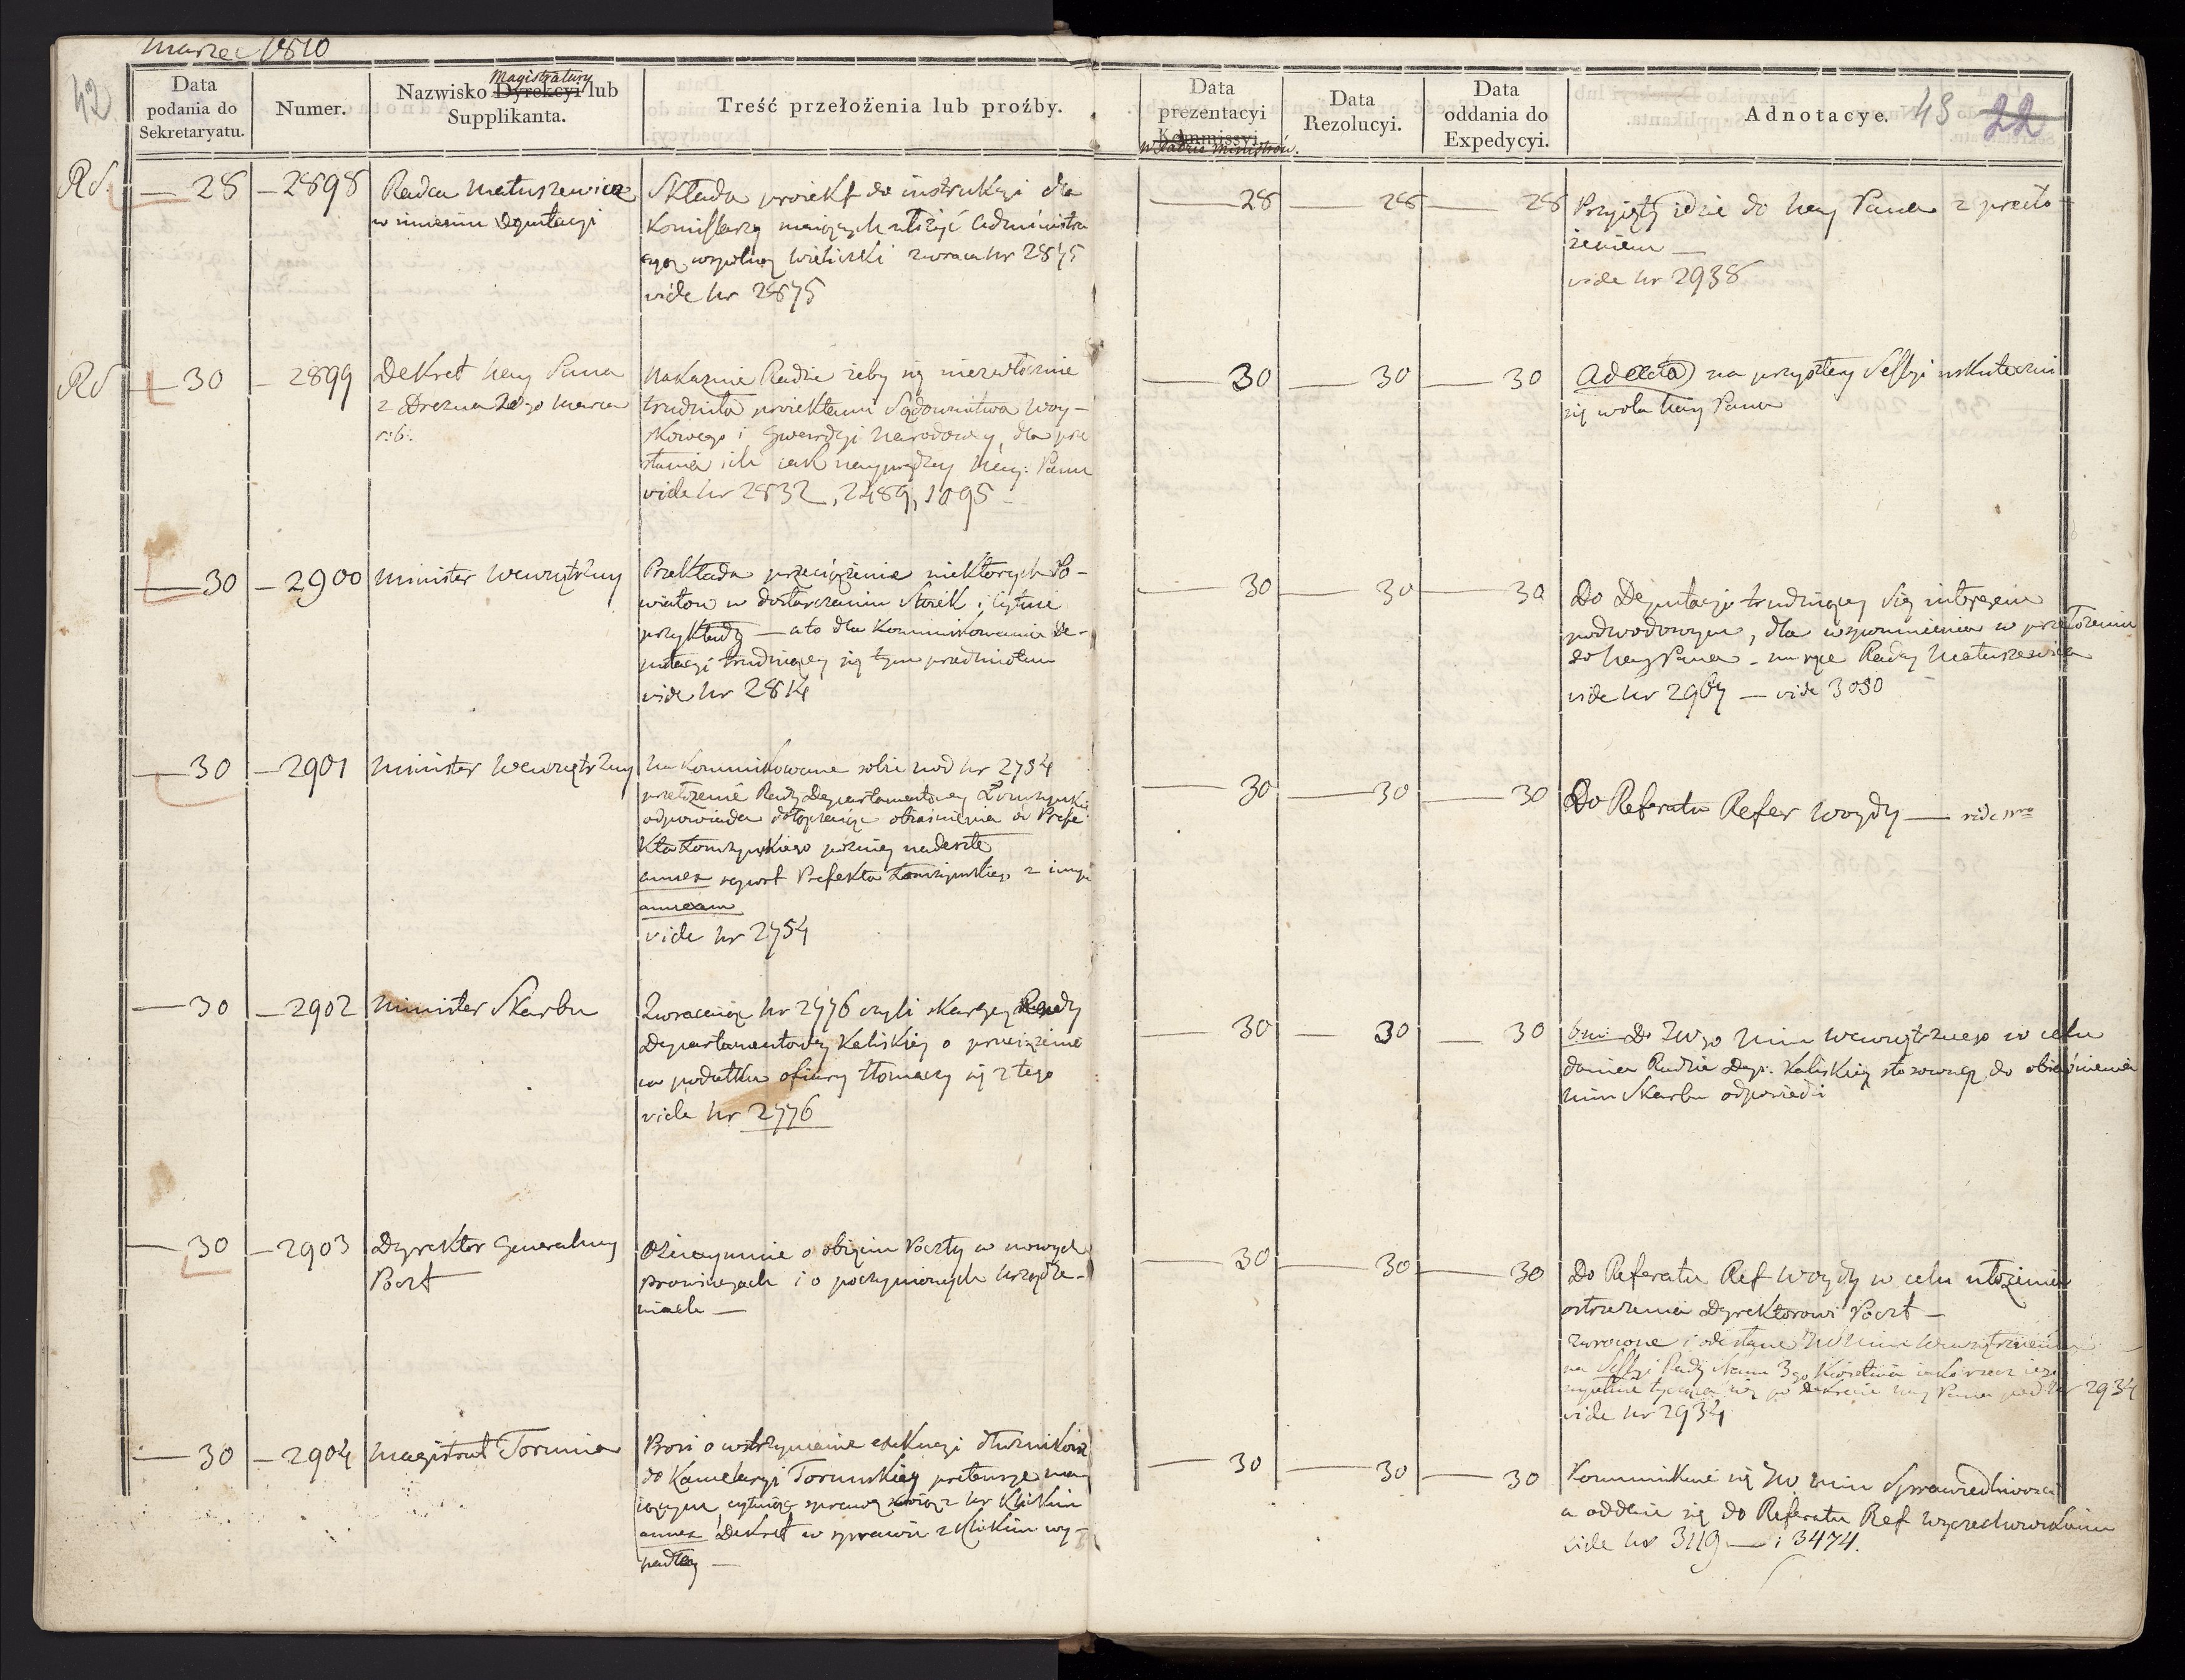 marzec 1810
42
Data
podania do
Sekretaryatu.
Numer.
Magistratury
Nazwisko Dyrekcyi lub
Supplikanta.
Treść przełożenia lub proźby.
Data
prezentacyi
Kommissyi
w Radzie Ministrów.
Data
Rezolucyi.
Data
oddania do
Expedycyi.
Adnotacye.
43 22
Rd
28
2898
Radca Matuszewicz
w imieniu Deputacyi
Składa proiekt do instrukcyi dla
Komissarzy maiących ułożyć Administra
cyą wspólną Wieliczki zwraca Nr 2875
vide Nr 2875
28
28
28
Przyięty idzie do Nay Pana z przeło
żeniem
vide Nr 2938
Rd
30
2899
Dekret Nay Pana
z Drezna 20go Marca
r: b:
Nakazuie Radzie żeby się niezwłocznie
trudniła proiektami Sądownictwa Woy-
skowego i Gwardyi Narodowey, dla prze
słania ich iak nayprędzey Nay: Panu
vide Nr 2832, 2489, 1095
30
30
30
Ad acta na przyszłey Sessyi uskuteczni
się wola Nay Pana
30
2900
Minister Wewnętrzny
Przekłada przeciążenie niektórych Po-
wiatów w dostarczaniu Stoiek i cytuie
przykłady — a to dla kommunikowania De-
putacyi trudniącey się tym przedmiotem
vide Nr 2814
30
30
30
Do Deputacyi trudniącey się interesem
podwodowym, dla wspomnienia w przełożeniu
do Nay Pana - na ręce Radcy Matuszewicza
vide Nr 2967 — vide 3080
30
2901
Minister Wewnętrzny
Na kommunikowane sobie pod Nr 2754
przełożenie Rady Departamentowey Łomżyńskiey
odpowiada dołączaiąc obiaśnienia od Prefe
kta Łomżyńskiego późniey nadeszłe
annex raport Prefekta Łomżyńskiego z innym
annexem
vide Nr 2754
30
30
30
Do Referatu Refer Woydy — vide Nro
30
2902
Minister Skarbu
Zwracaiąc Nr 2776 czyli skargę Rady
Departamentowey Kaliskiey o przeciążenie
w podatku ofiary tłomaczy się z tego
vide Nr 2776
30
30
30
bm Do JWgo Min Wewnętrznego w celu
dania Radzie Dep: Kaliskiey stosowney do obiaśnienia
Min Skarbu odpowiedzi
30
2903
Dyrektor Generalny
Poczt
Oznaymuie o obięciu Poczty w nowych
Prowincyach i o poczynionych urządze-
niach —
30
30
30
Do Referatu Ref Woydy w celu ułożenia
ostrzeżenia Dyrektorowi Poczt —
zwrócone i odesłane JW Min Wewnętrznemu
na Sessyi Rady Stanu 3go Kwietnia iako rzecz iego
tycząca się po Dekrecie Nay Pana pod Nr 2934
vide Nr 2934
30
2904
Magistrat Torunia
Prosi o wstrzymanie exekucyi dłużników
do Kamelaryi Toruńskiey pretensye ma
iącym, cytuiąc sprawę swoią z Klikim
annex Dekret w sprawie z Klikim wy-
padły —
30
30
30
Kommunikuie się JW Min Sprawiedliwości
a oddaie się do Referatu Ref Wyczechowskiemu
vide Nr 3119 — i 3474.